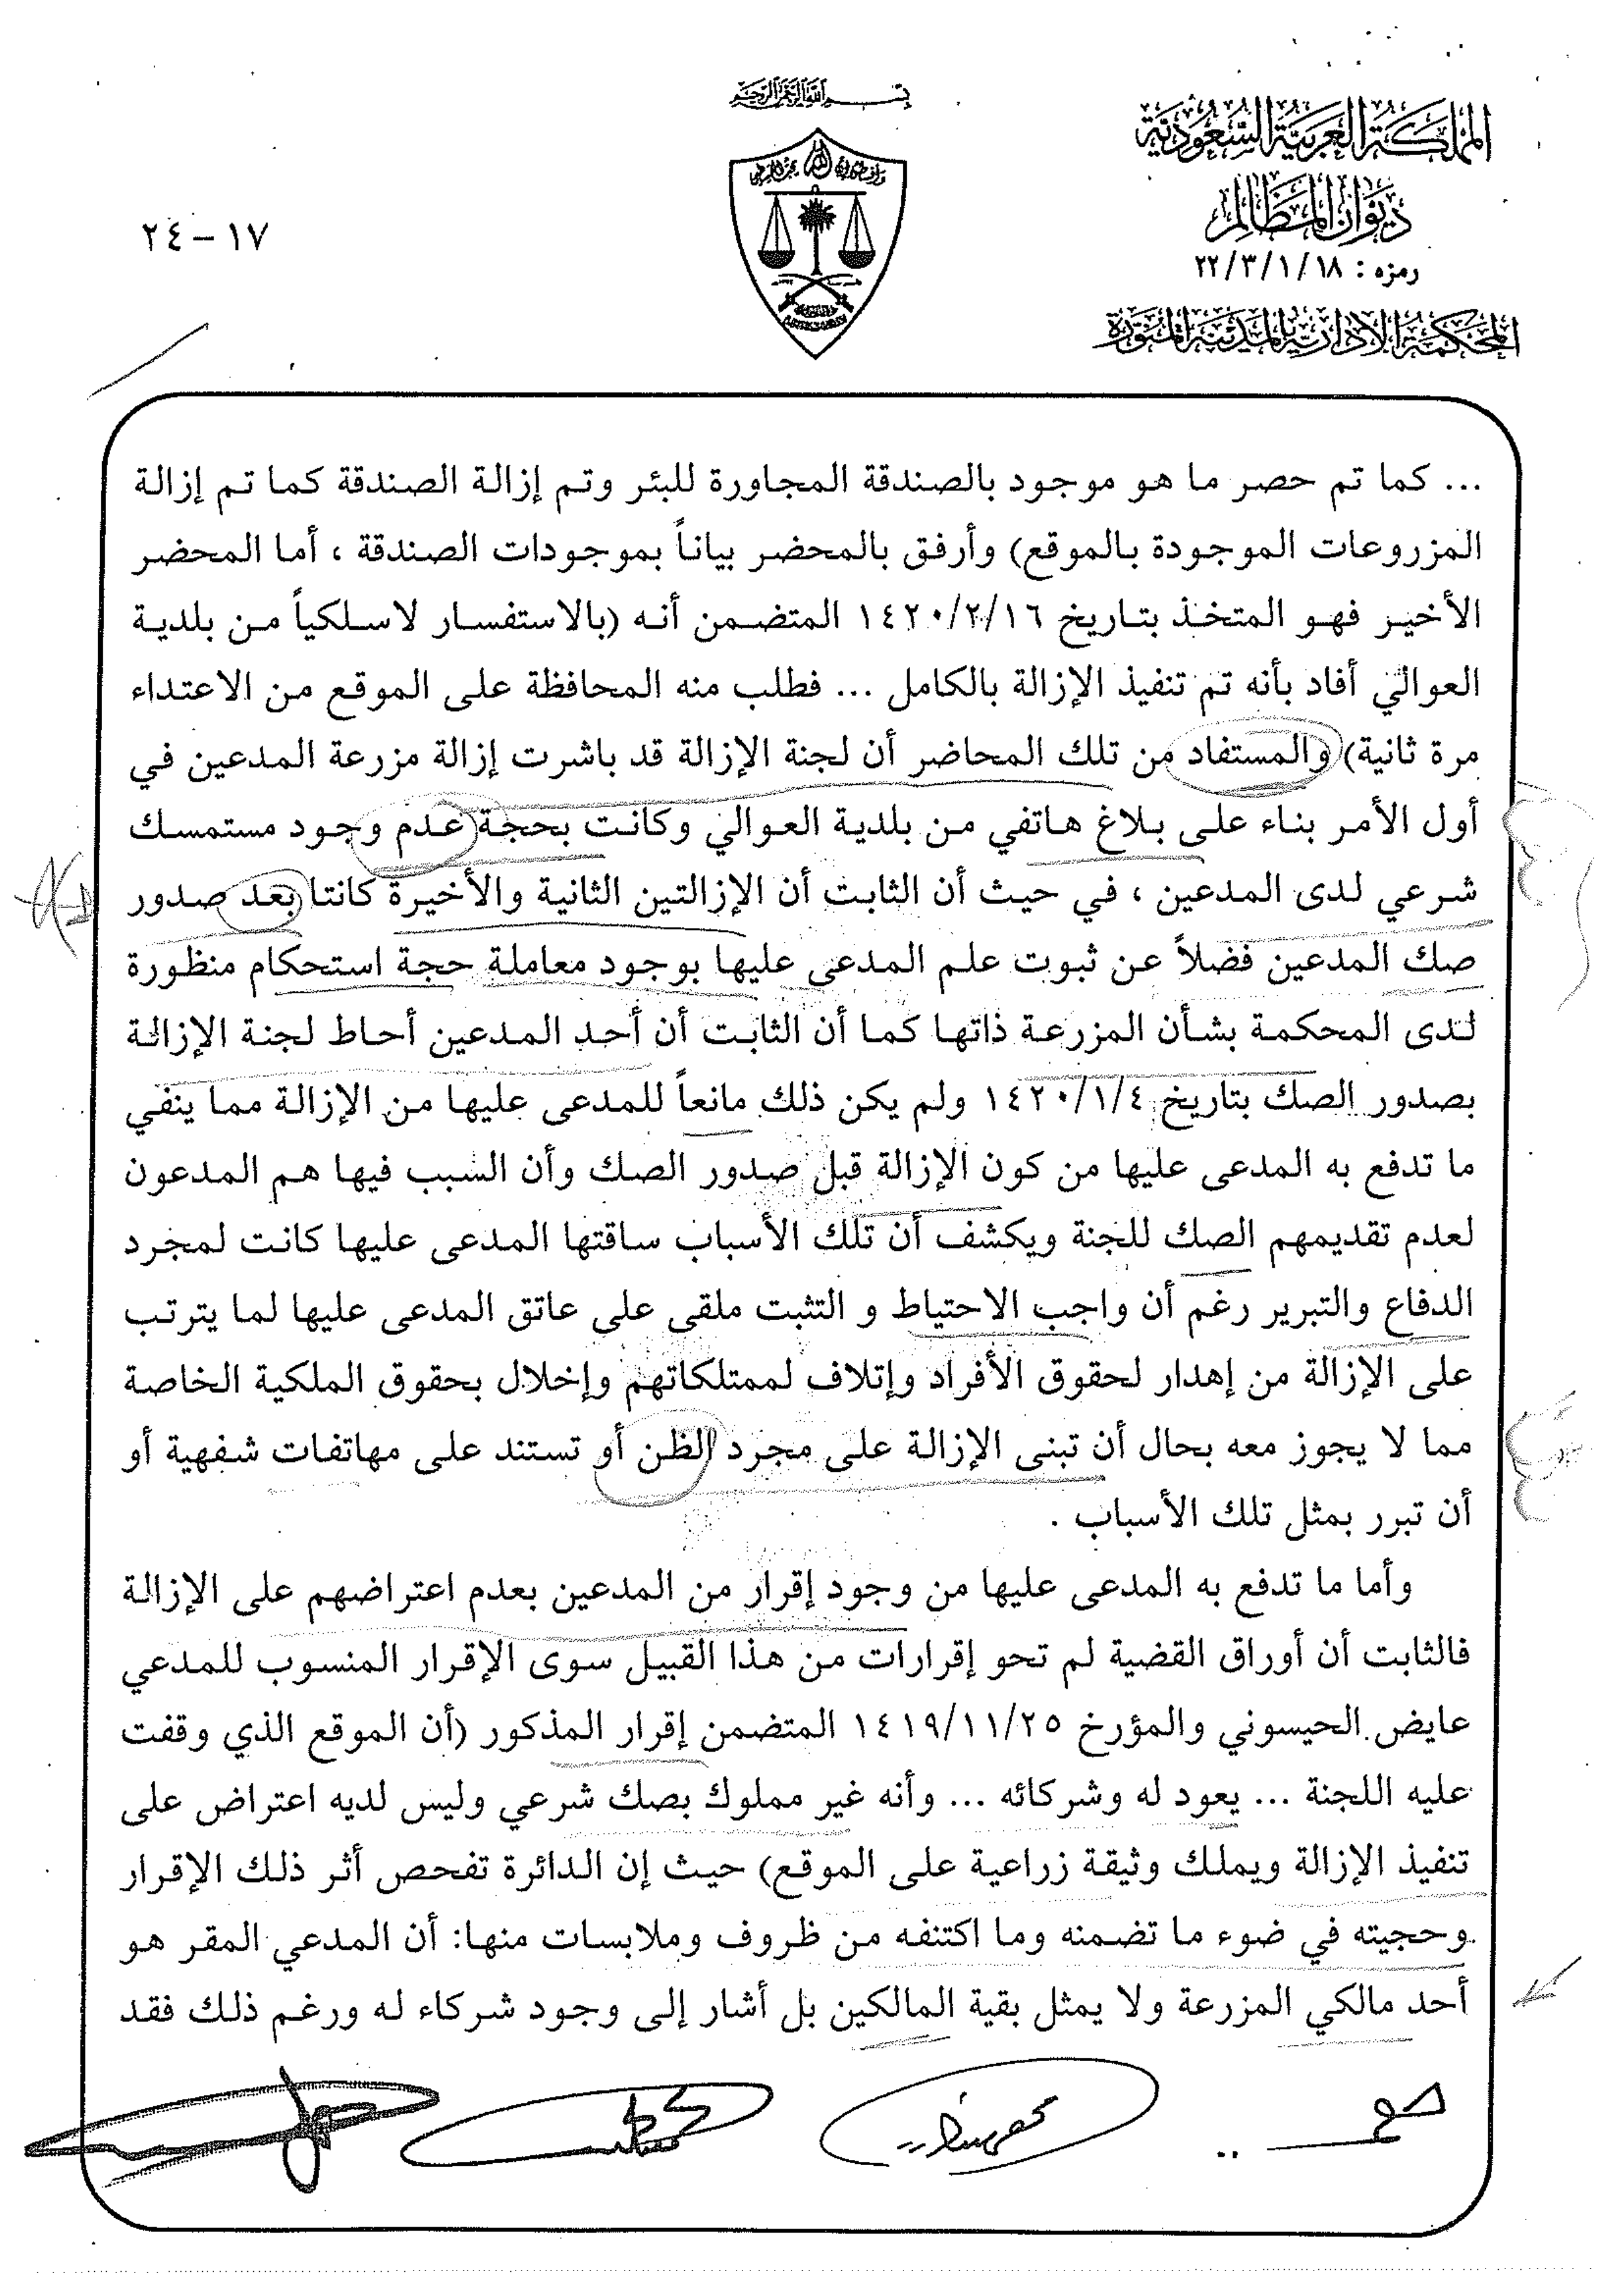 بسم الله الرحمن الرحيم
المملكة العربية السعودية
ديوان المظالم
رمزه : ٢٢/٣/١/١٨
المحكمة الإدارية بالمدينة المنورة
١٧ – ٢٤
... كما تم حصر ما هو موجود بالصندقة المجاورة للبئر وتم إزالة الصندقة كما تم إزالة
المزروعات الموجودة بالموقع) وأرفق بالمحضر بياناً بموجودات الصندقة ، أما المحضر
الأخير فهو المتخذ بتاريخ ١٤٢٠/٢/١٦ المتضمن أنه (بالاستفسار لاسلكياً من بلدية
العوالي أفاد بأنه تم تنفيذ الإزالة بالكامل ... فطلب منه المحافظة على الموقع من الاعتداء
مرة ثانية) والمستفاد من تلك المحاضر أن لجنة الإزالة قد باشرت إزالة مزرعة المدعين في
أول الأمر بناء على بلاغ هاتفي من بلدية العوالي وكانت بحجة عدم وجود مستمسك
شرعي لدى المدعين ، في حيث أن الثابت أن الإزالتين الثانية والأخيرة كانتا بعد صدور
صك المدعين فضلاً عن ثبوت علم المدعى عليها بوجود معاملة حجة استحكام منظورة
لدى المحكمة بشأن المزرعة ذاتها كما أن الثابت أن أحد المدعين أحاط لجنة الإزالة
بصدور الصك بتاريخ ١٤٢٠/١/٤ ولم يكن ذلك مانعاً للمدعى عليها من الإزالة مما ينفي
ما تدفع به المدعى عليها من كون الإزالة قبل صدور الصك وأن السبب فيها هم المدعون
لعدم تقديمهم الصك للجنة ويكشف أن تلك الأسباب ساقتها المدعى عليها كانت لمجرد
الدفاع والتبرير رغم أن واجب الاحتياط و التثبت ملقى على عاتق المدعى عليها لما يترتب
على الإزالة من إهدار لحقوق الأفراد وإتلاف لممتلكاتهم وإخلال بحقوق الملكية الخاصة
مما لا يجوز معه بحال أن تبنى الإزالة على مجرد الظن أو تستند على مهاتفات شفهية أو
أن تبرر بمثل تلك الأسباب .
وأما ما تدفع به المدعى عليها من وجود إقرار من المدعين بعدم اعتراضهم على الإزالة
فالثابت أن أوراق القضية لم تحو إقرارات من هذا القبيل سوى الإقرار المنسوب للمدعي
عايض الحيسوني والمؤرخ ١٤١٩/١١/٢٥ المتضمن إقرار المذكور (أن الموقع الذي وقفت
عليه اللجنة ... يعود له وشركائه ... وأنه غير مملوك بصك شرعي وليس لديه اعتراض على
تنفيذ الإزالة ويملك وثيقة زراعية على الموقع) حيث إن الدائرة تفحص أثر ذلك الإقرار
وحجيته في ضوء ما تضمنه وما اكتنفه من ظروف وملابسات منها: أن المدعي المقر هو
أحد مالكي المزرعة ولا يمثل بقية المالكين بل أشار إلى وجود شركاء له ورغم ذلك فقد